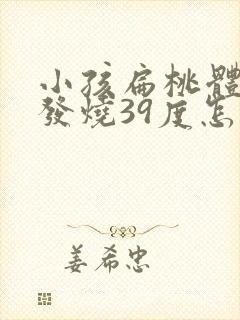 小孩扁桃體
發燒39度怎
姜希忠